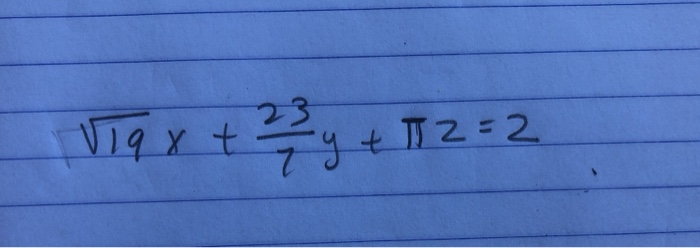 √19 x + 23/7 y + π z = 2